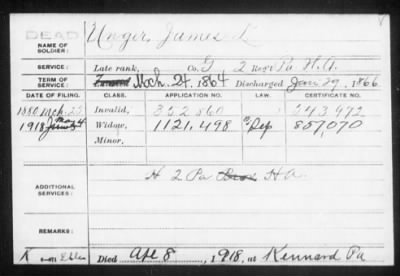 DEAD
NAME OF SOLDIER: Unger, James
SERVICE: Late rank, Co. G, 2 Reg't Pa H.A.
TERM OF SERVICE: Enlisted Mch. 24, 1864 Discharged Jan 29, 1866
DATE OF FILING. CLASS. APPLICATION NO. LAW. CERTIFICATE NO.
1880 Mch. 25 Invalid, 352,860 243,972
1918 May 4 Widow, 1121,498 857070
Minor,
ADDITIONAL SERVICES: H 2 Pa H A
REMARKS:
Died Apl 8, 1918, at Kennard Pa